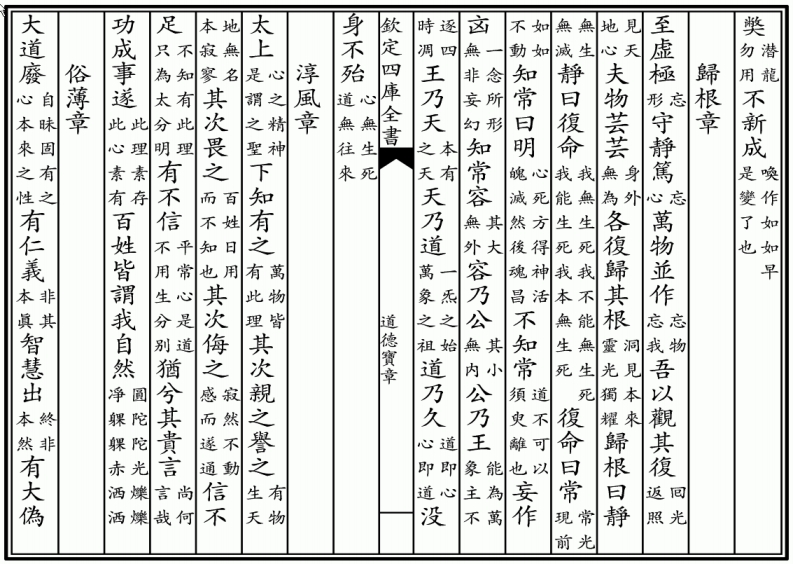 獘潛龍勿用不新成喚作如如早是變了也
歸根章
至虛極忘形守靜篤忘心萬物並作忘物忘我吾以觀其復回光返照
見天地心夫物芸芸身外無為各復歸其根洞見本來靈光獨耀歸根曰靜
無生無滅靜曰復命我無生死我不能無生死我能生死我本無生死復命曰常常光現前
如如不動知常曰明心死方得神活魄滅然後魂昌不知常道不可以須臾離也妄作
凶一念所形無非妄幻知常容其大無外容乃公其小無內公乃王能為萬象主不
逐四時凋王乃天本有之天天乃道一炁之始萬象之祖道乃久道即心心即道没
欽定四庫全書 道德寶章
身不殆心無生死道無往來
淳風章
太上心之精神是謂之聖下知有之萬物皆有此理其次親之譽之有物生天
地無名本寂寥其次畏之百姓日用而不知也其次侮之寂然不動感而遂通信不
足不知有此理只為太分明有不信平常心是道不用生分別猶兮其貴言尚何言哉
功成事遂此理素存此心素有百姓皆謂我自然圓陀陀光爍爍淨躶躶赤洒洒
俗薄章
大道廢自昧固有之心本來之性有仁義非其本眞智慧出終非本然有大偽